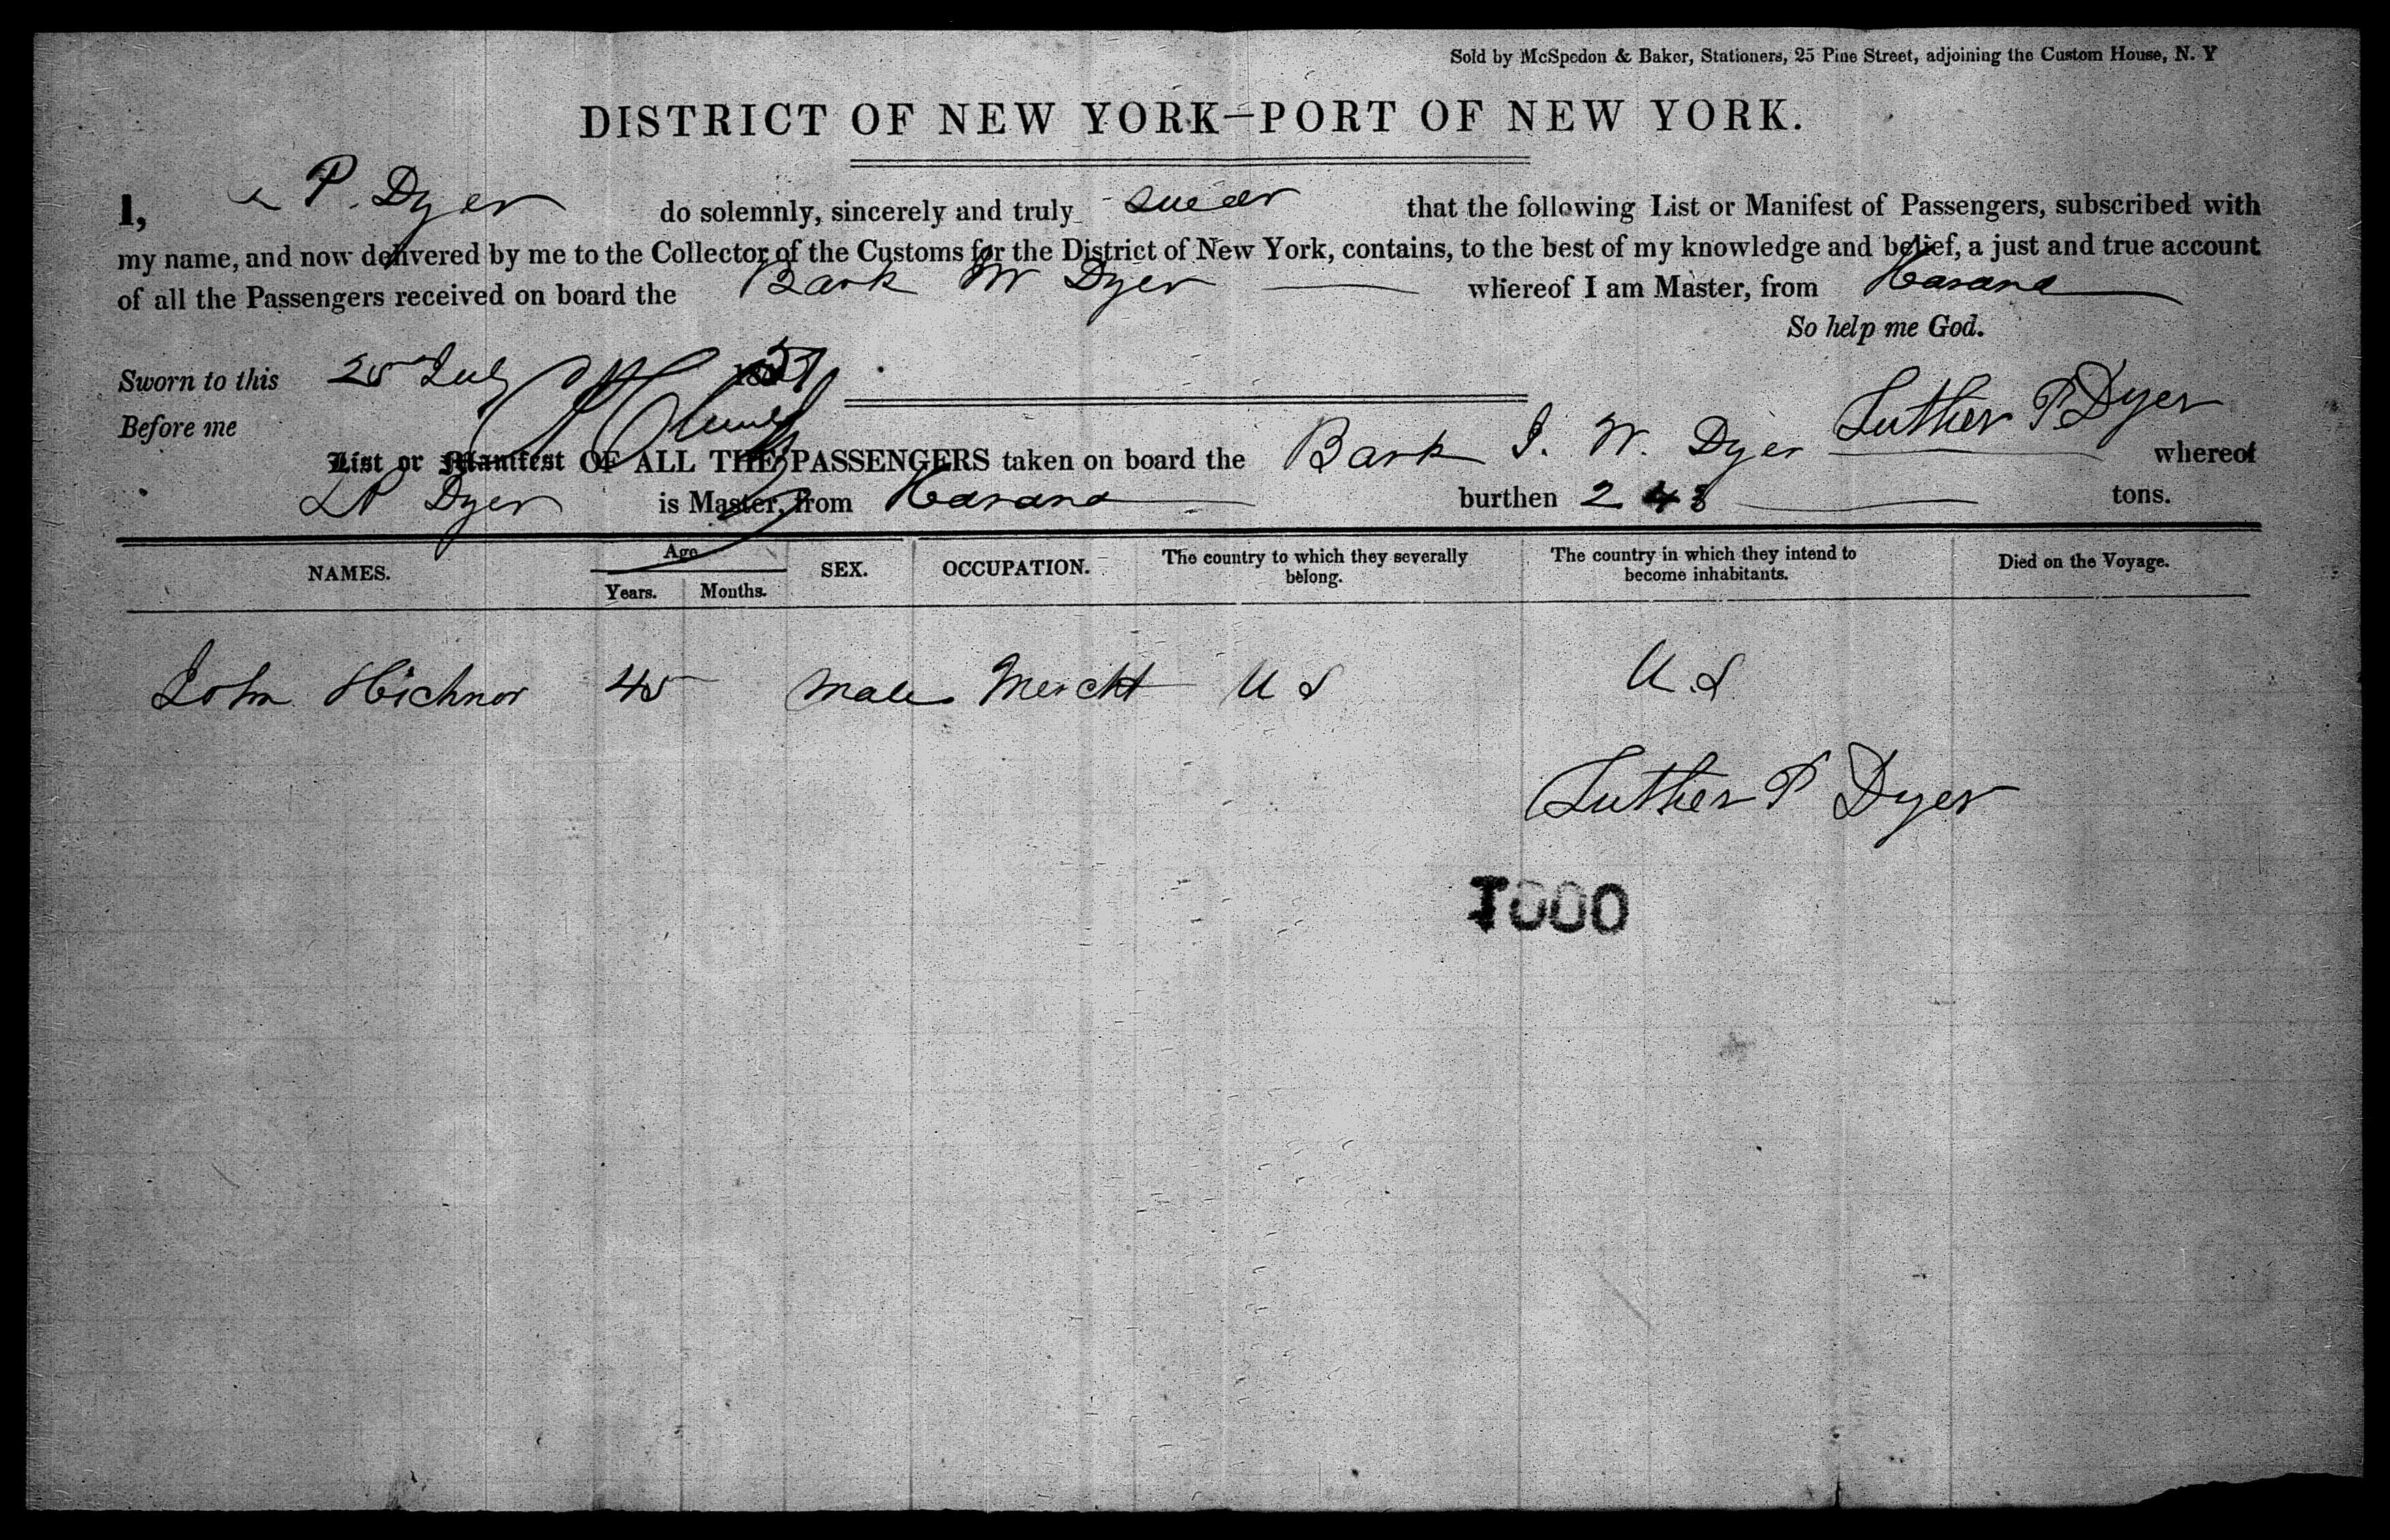 Sold by McSpedon & Baker, Stationers, 25 Pine Street, adjoining the Custom House, N. Y
DISTRICT OF NEW YORK—PORT OF NEW YORK.
I, P. Dyer do solemnly, sincerely and truly swear that the following List or Manifest of Passengers, subscribed with
my name, and now delivered by me to the Collector of the Customs for the District of New York, contains, to the best of my knowledge and belief, a just and true account
of all the Passengers received on board the Bark W Dyer whereof I am Master, from Havana
So help me God.
Sworn to this 25 July
Before me
Luther P Dyer
List or Manifest OF ALL THE PASSENGERS taken on board the Bark J. W. Dyer whereof
L P Dyer is Master, from Havana burthen 248 tons.
NAMES. Age Years. Months. SEX. OCCUPATION. The country to which they severally belong. The country in which they intend to become inhabitants. Died on the Voyage.
John Hichnor 45 Male Mercht U S U.S.
Luther P Dyer
1000